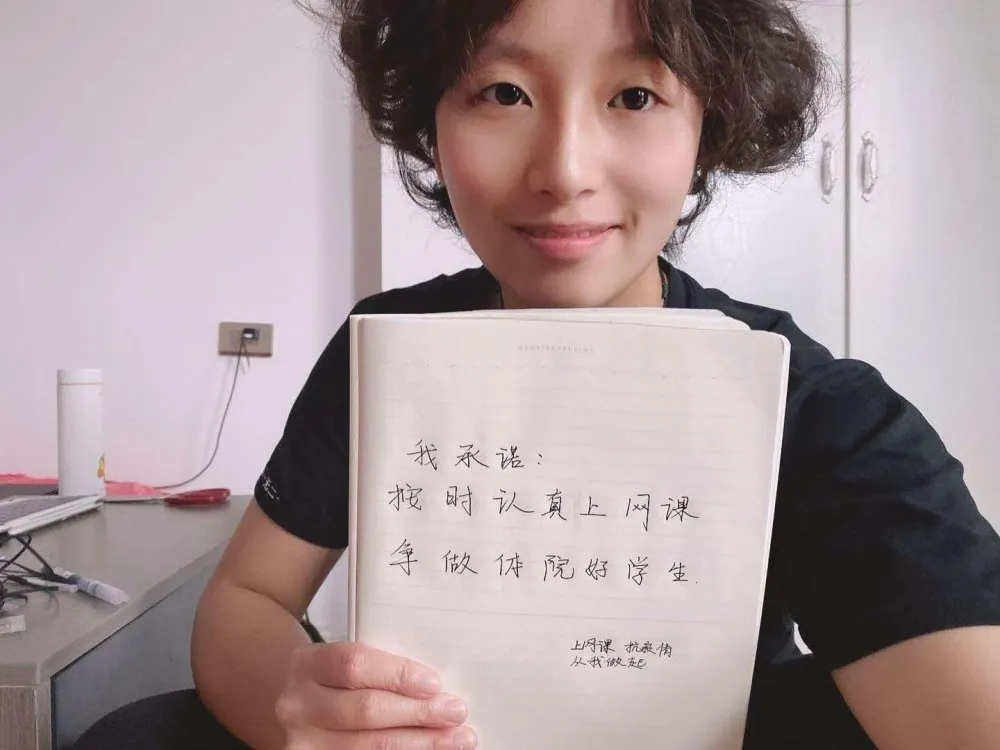 我承诺：
按时认真上网课
争做体院好学生.
上网课 抗疫情
从我做起